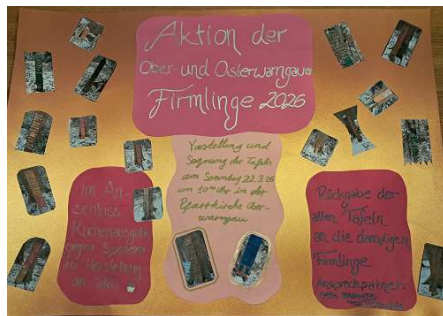 Aktion der
Ober und Osterwarngauer
Firmlinge 2026
Vorstellung und
Segnung der Tafeln
am Sonntag 22.3.26
um 10 Uhr in der
Pfarrkirche Ober-
warngau
Im An-
schluss
Kuchenausgabe
gegen Spenden
zur Herstellung
der
Rückgabe der
alten Tafeln
an die damaligen
Firmlinge
Ansprechpartner: